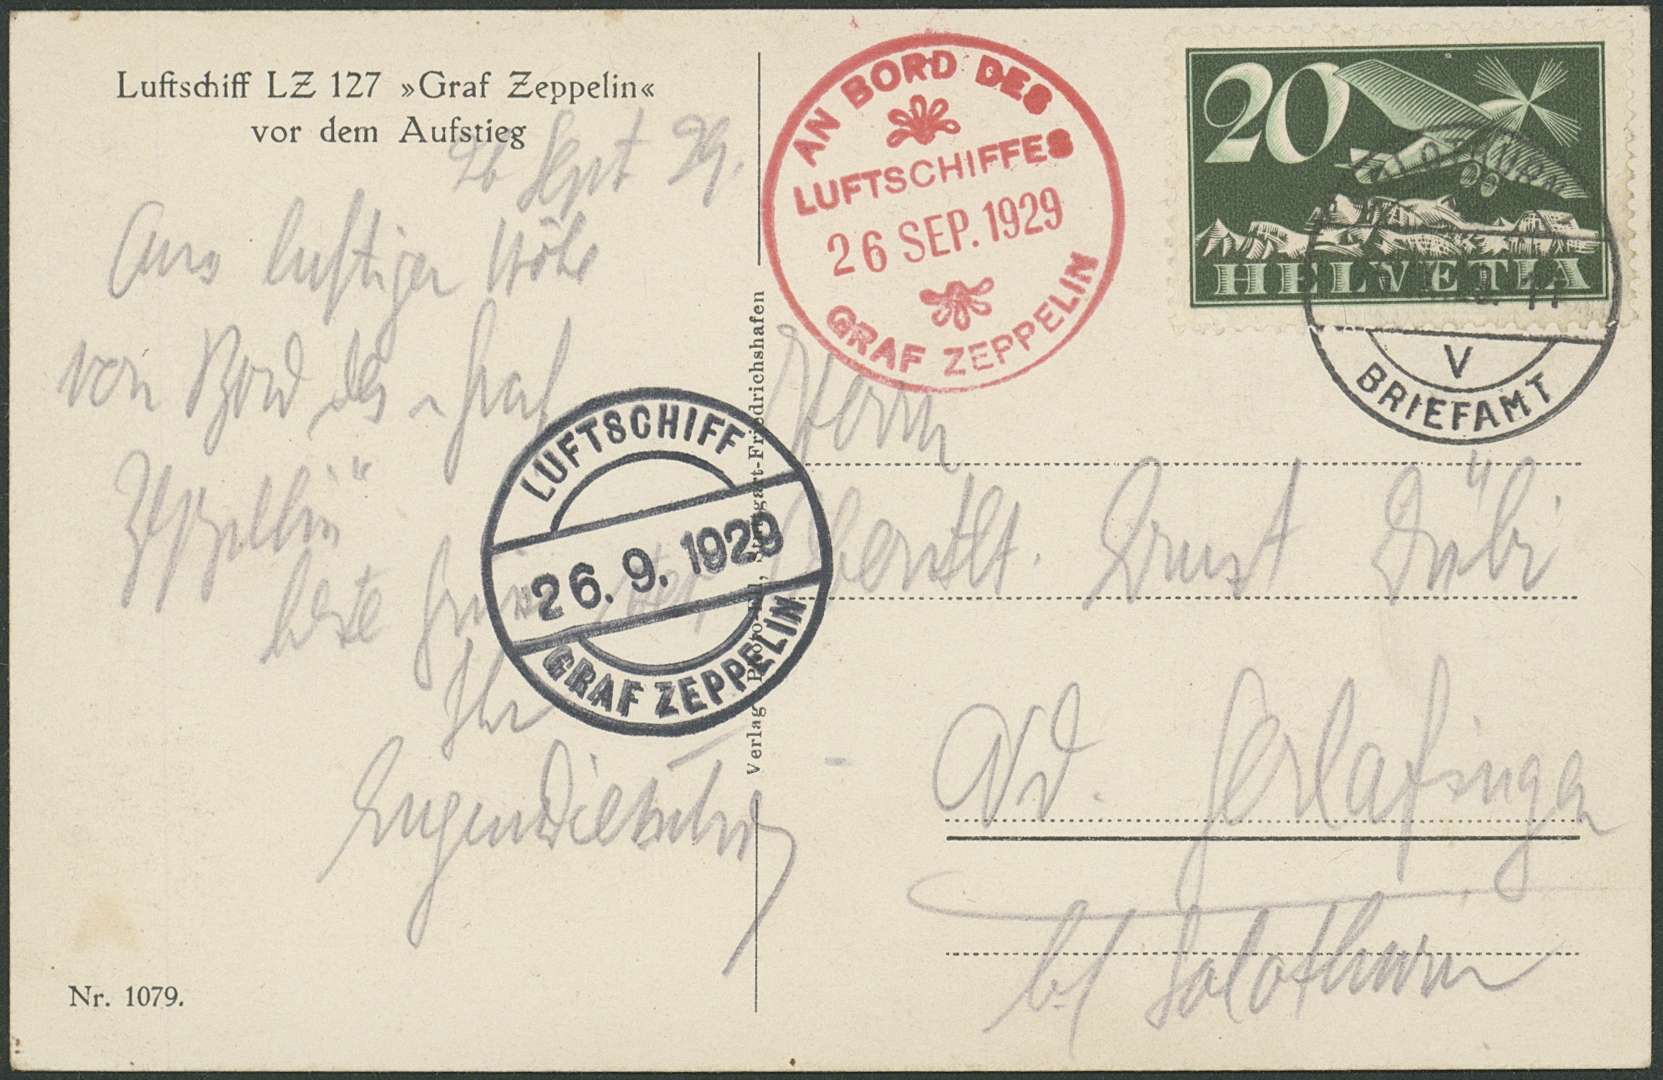 Luftschiff LZ 127 »Graf Zeppelin«
vor dem Aufstieg
26 Sept 29.
Aus luftiger Höhe
von Bord des "Graf
Zeppelin"
beste
Ihr
Eugen
Nr. 1079.
Verlag Photo- , Stuttgart-Friedrichshafen
AN BORD DES
LUFTSCHIFFES
26 SEP. 1929
GRAF ZEPPELIN
LUFTSCHIFF
26.9.1929
GRAF ZEPPELIN
20
HELVETIA
V
BRIEFAMT
Herrn
Oberstlt. Ernst Dübi
Nd. Gerlafingen
b/ Solothurn